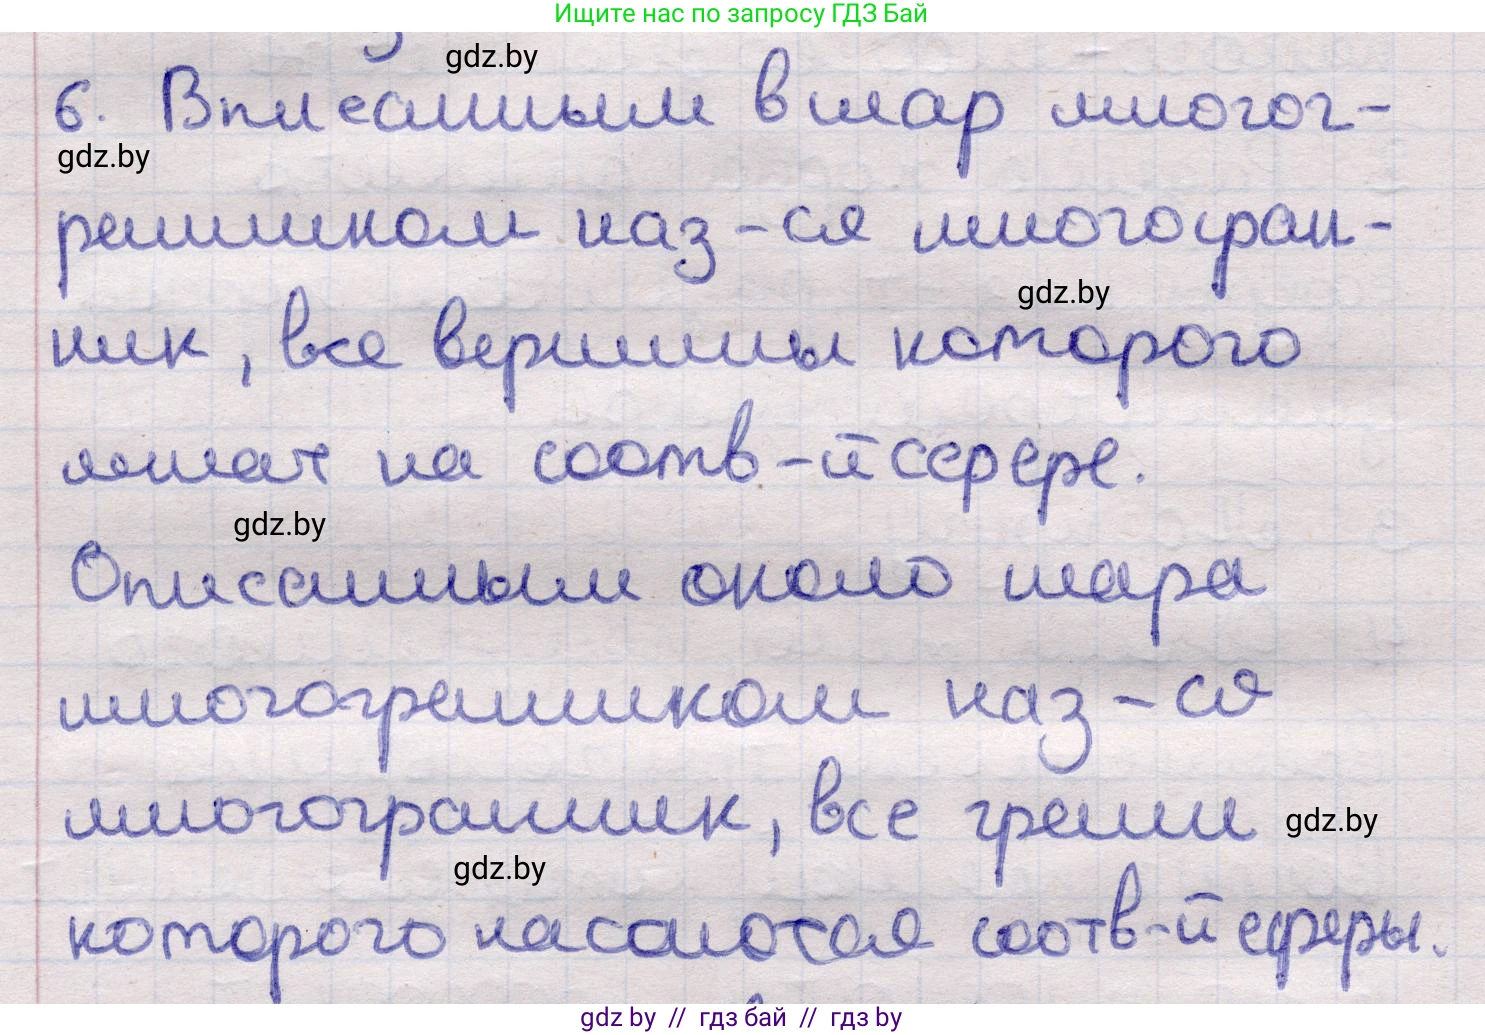 Ищите нас по запросу ГДЗ Бай
gdz.by
6. Вписанным в шар многог-
gdz.by
ранником наз-ся многогран-
gdz.by
ник, все вершины которого
лежат на соотв-й сфере.
gdz.by
Описанным около шара
многогранником наз-ся
многогранник, все грани
gdz.by
gdz.by
которого касаются соотв-й сферы.
gdz by // гдз бай // гдз by